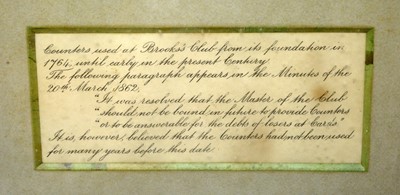 Counters used at Brooks's Club from its foundation in
1764, until early in the present Century.
The following paragraph appears in the Minutes of the
20th March, 1862.
"It was resolved that the Master of the Club
"should not be bound in future to provide Counters
"or to be answerable for the debts of losers at Cards"
It is, however, believed that the Counters had not been used
for many years before this date.